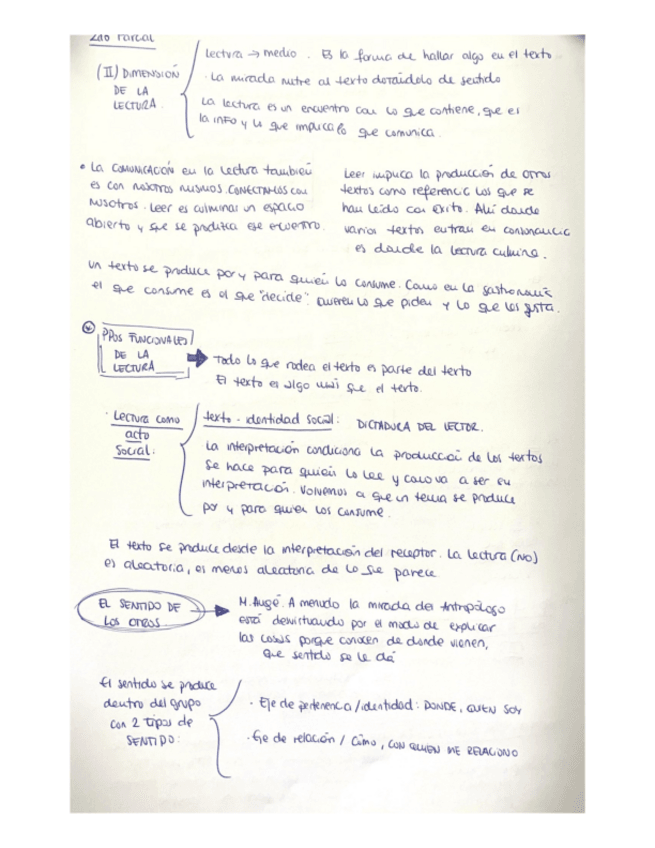 2do Parcial
(II) DIMENSIÓN
DE LA
LECTURA.
Lectura → medio. Es la forma de hallar algo en el texto
· La mirada nutre al texto dotándolo de sentido
La lectura es un encuentro con lo que contiene, que es
la info y lo que implica lo que comunica.
• La COMUNICACIÓN en la lectura también
es con nosotros mismos. CONECTAMOS con
nosotros. Leer es culminar un espacio
abierto y que se produzca ese encuentro.
Leer implica la producción de otros
textos como referencia los que se
han leído con éxito. Ahí donde
varios textos entran en consonancia
es donde la lectura culmina.
un texto se produce por y para quien lo consume. Como en la gastronomía
el que consume es el que "decide". Quieren lo que piden y lo que les gusta.
PPOS FUNCIONALES
DE LA
LECTURA
Todo lo que rodea el texto es parte del texto
El texto es algo más que el texto.
· Lectura como
acto
social:
texto - identidad social: DICTADURA DEL LECTOR.
La interpretación condiciona la producción de los textos
Se hace para quien lo lee y como va a ser su
interpretación. Volvemos a que un tema se produce
por y para quien los consume.
El texto se produce desde la interpretación del receptor. La lectura (NO)
es aleatoria, es menos aleatoria de lo que parece.
EL SENTIDO DE
LOS OTROS
M. Augé. A menudo la mirada del Antropólogo
está desvirtuando por el modo de explicar
las cosas porque conocen de donde vienen,
que sentido se le dá
El sentido se produce
dentro del grupo
con 2 tipos de
SENTIDO:
· Eje de pertenencia/identidad: DONDE, QUIEN SOY
· Eje de relación / Cómo, CON QUIEN ME RELACIONO